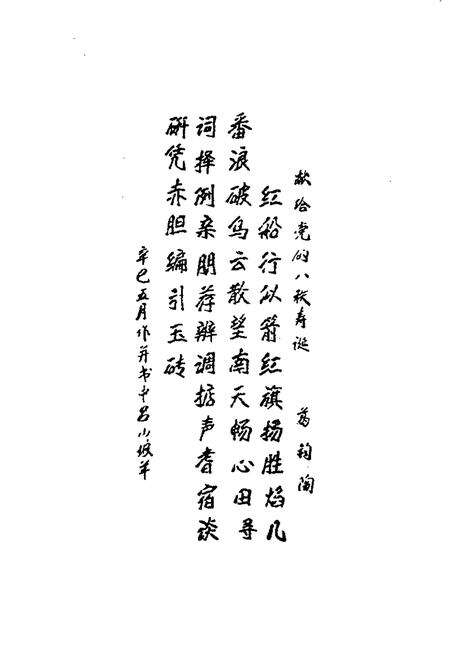 献给党的八秩寿诞 葛 陶
红船行似箭红旗扬胜焰几
番浪破乌云散望南天畅心田寻
词择例亲朋荐辨调掂声耆宿谈
研凭赤胆编引玉砖
辛巳五月作并书中吕山坡羊